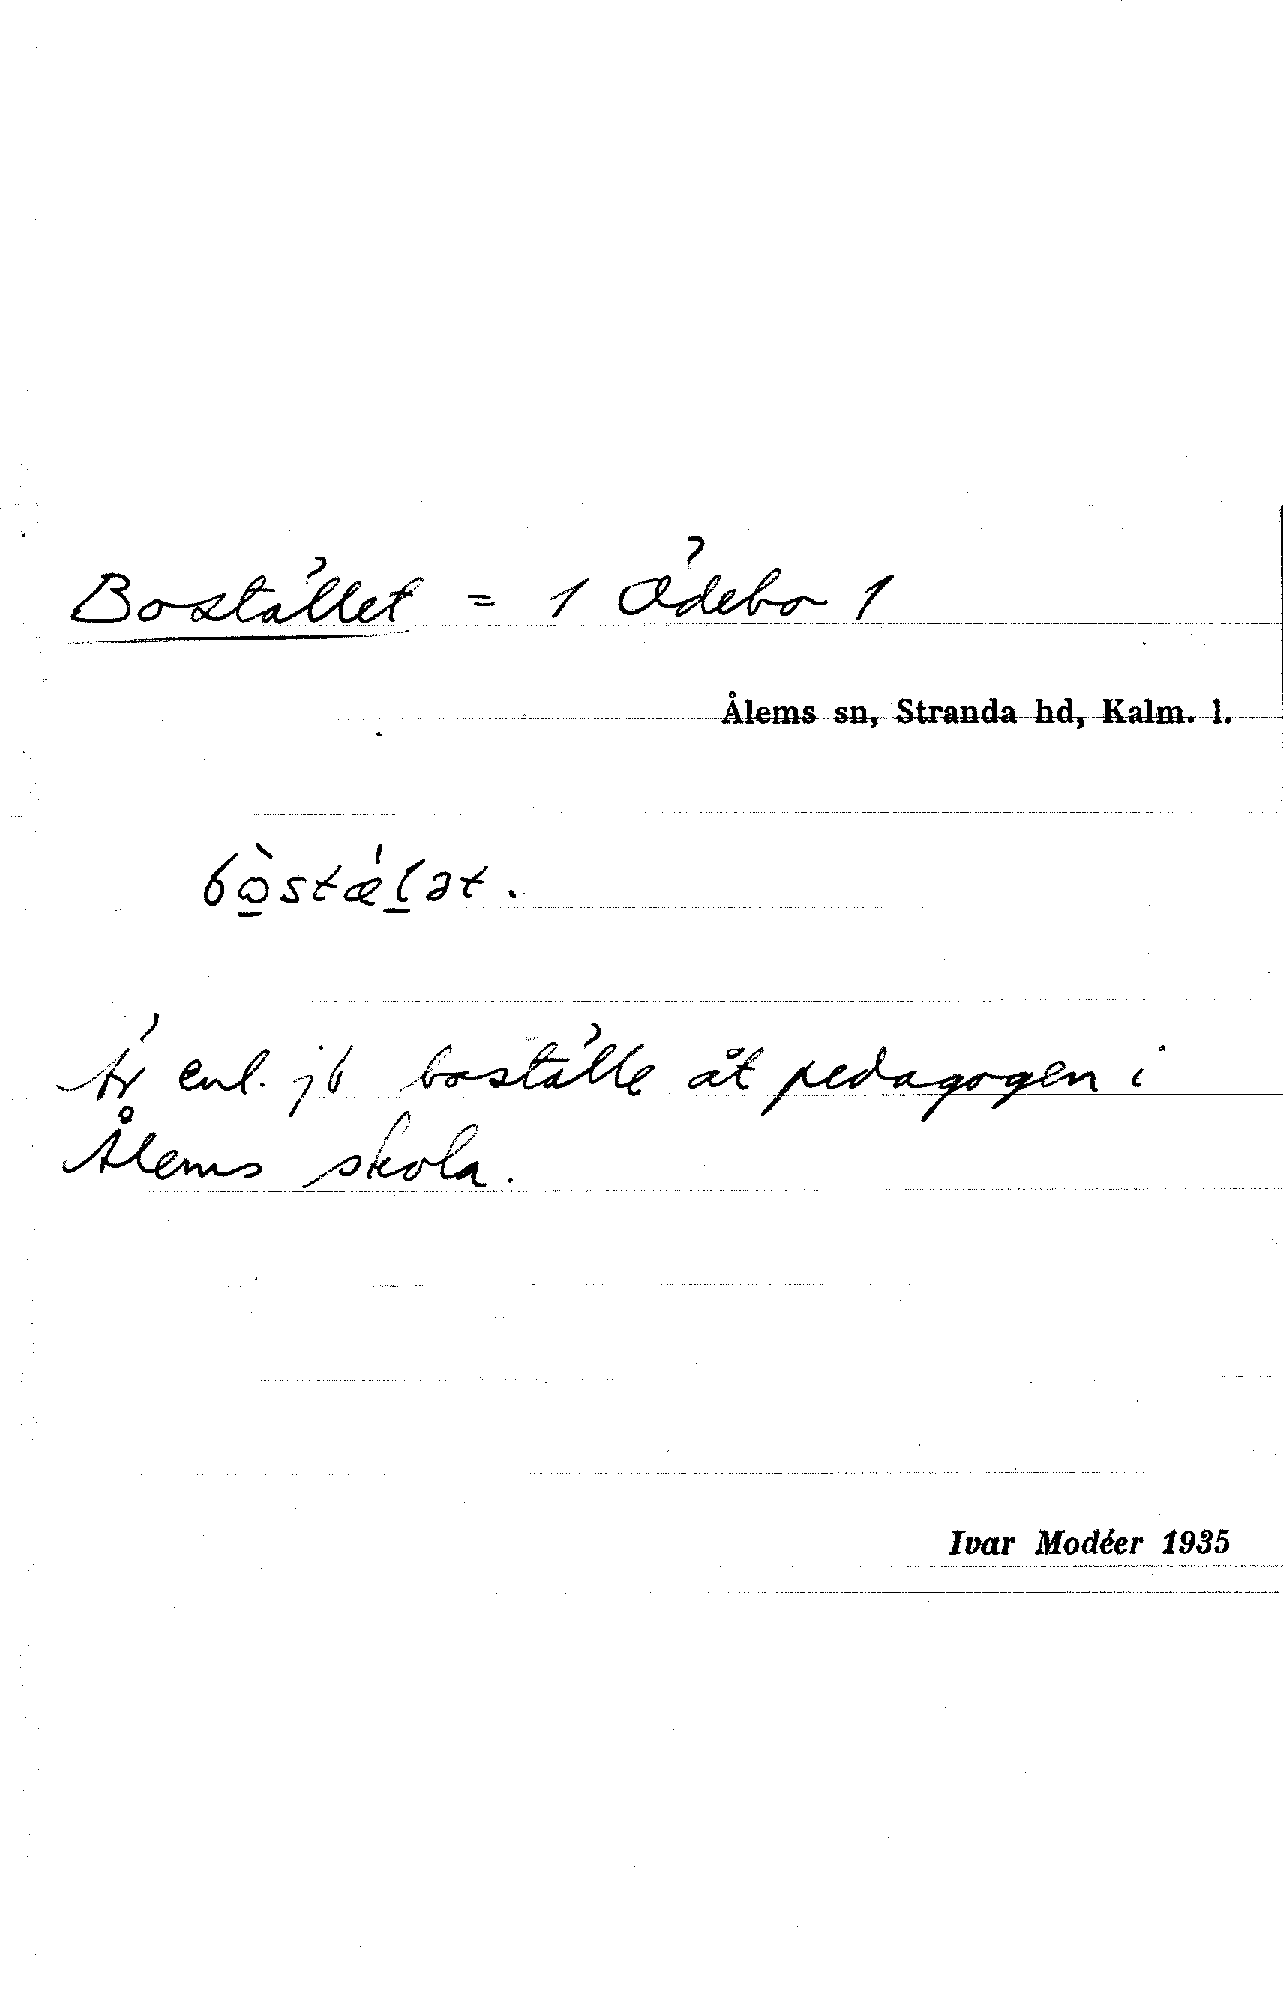 Bostället = 1 Ödebo 1
Ålems sn, Stranda hd, Kalm. l.
Är enl. jb boställe åt pedagogen i
Ålems skola.
Ivar Modéer 1935